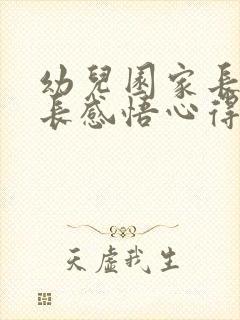 幼兒園家長
長感悟心得
天虛我生